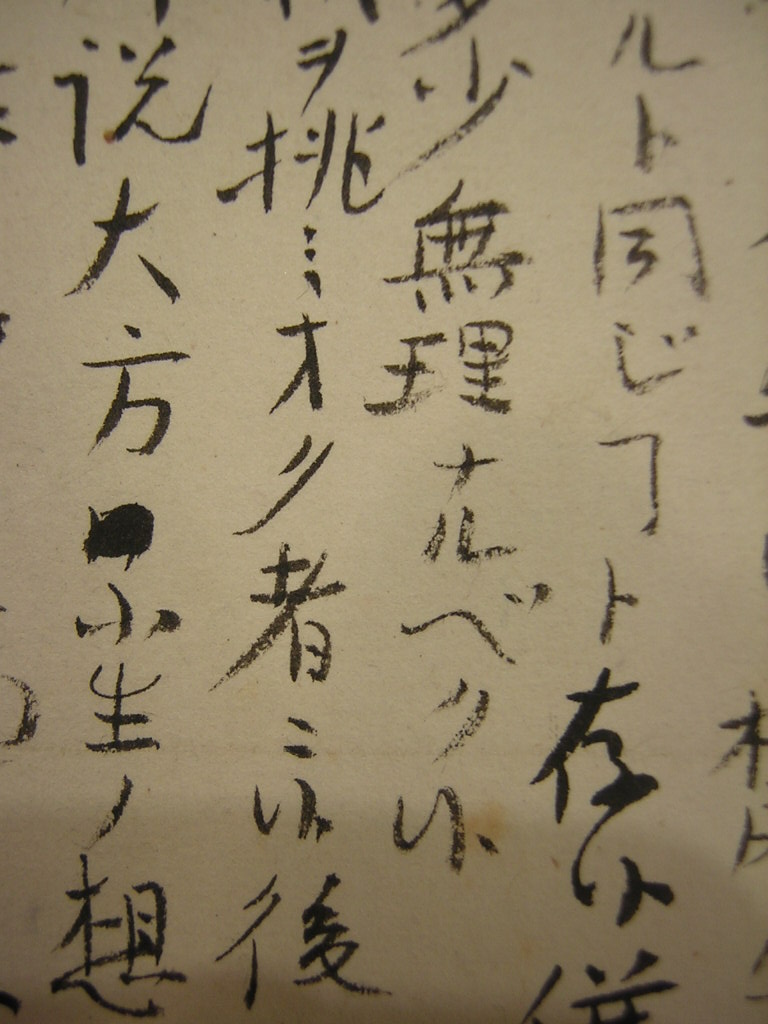 ルト同じヿト存候併
多少無理ナルベク候
ヲ挑ミオク者ニ候後
説大方小生ノ想